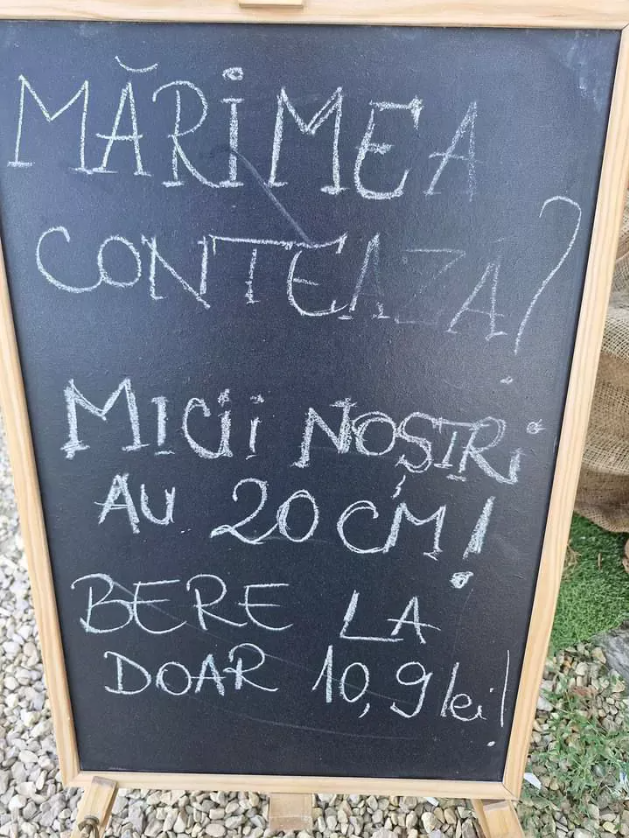 MĂRIMEA
CONTEAZĂ?
MICII NOȘTRI
AU 20 CM!
BERE LA
DOAR 10,9 lei!